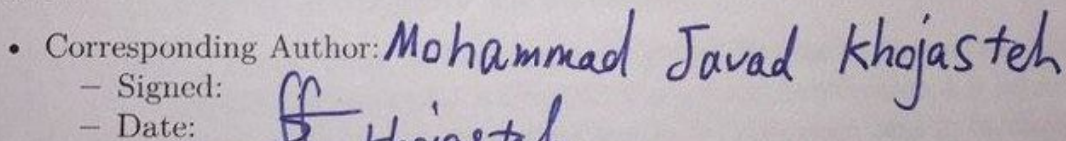 • Corresponding Author: Mohammad Javad Khojasteh
– Signed:
– Date: